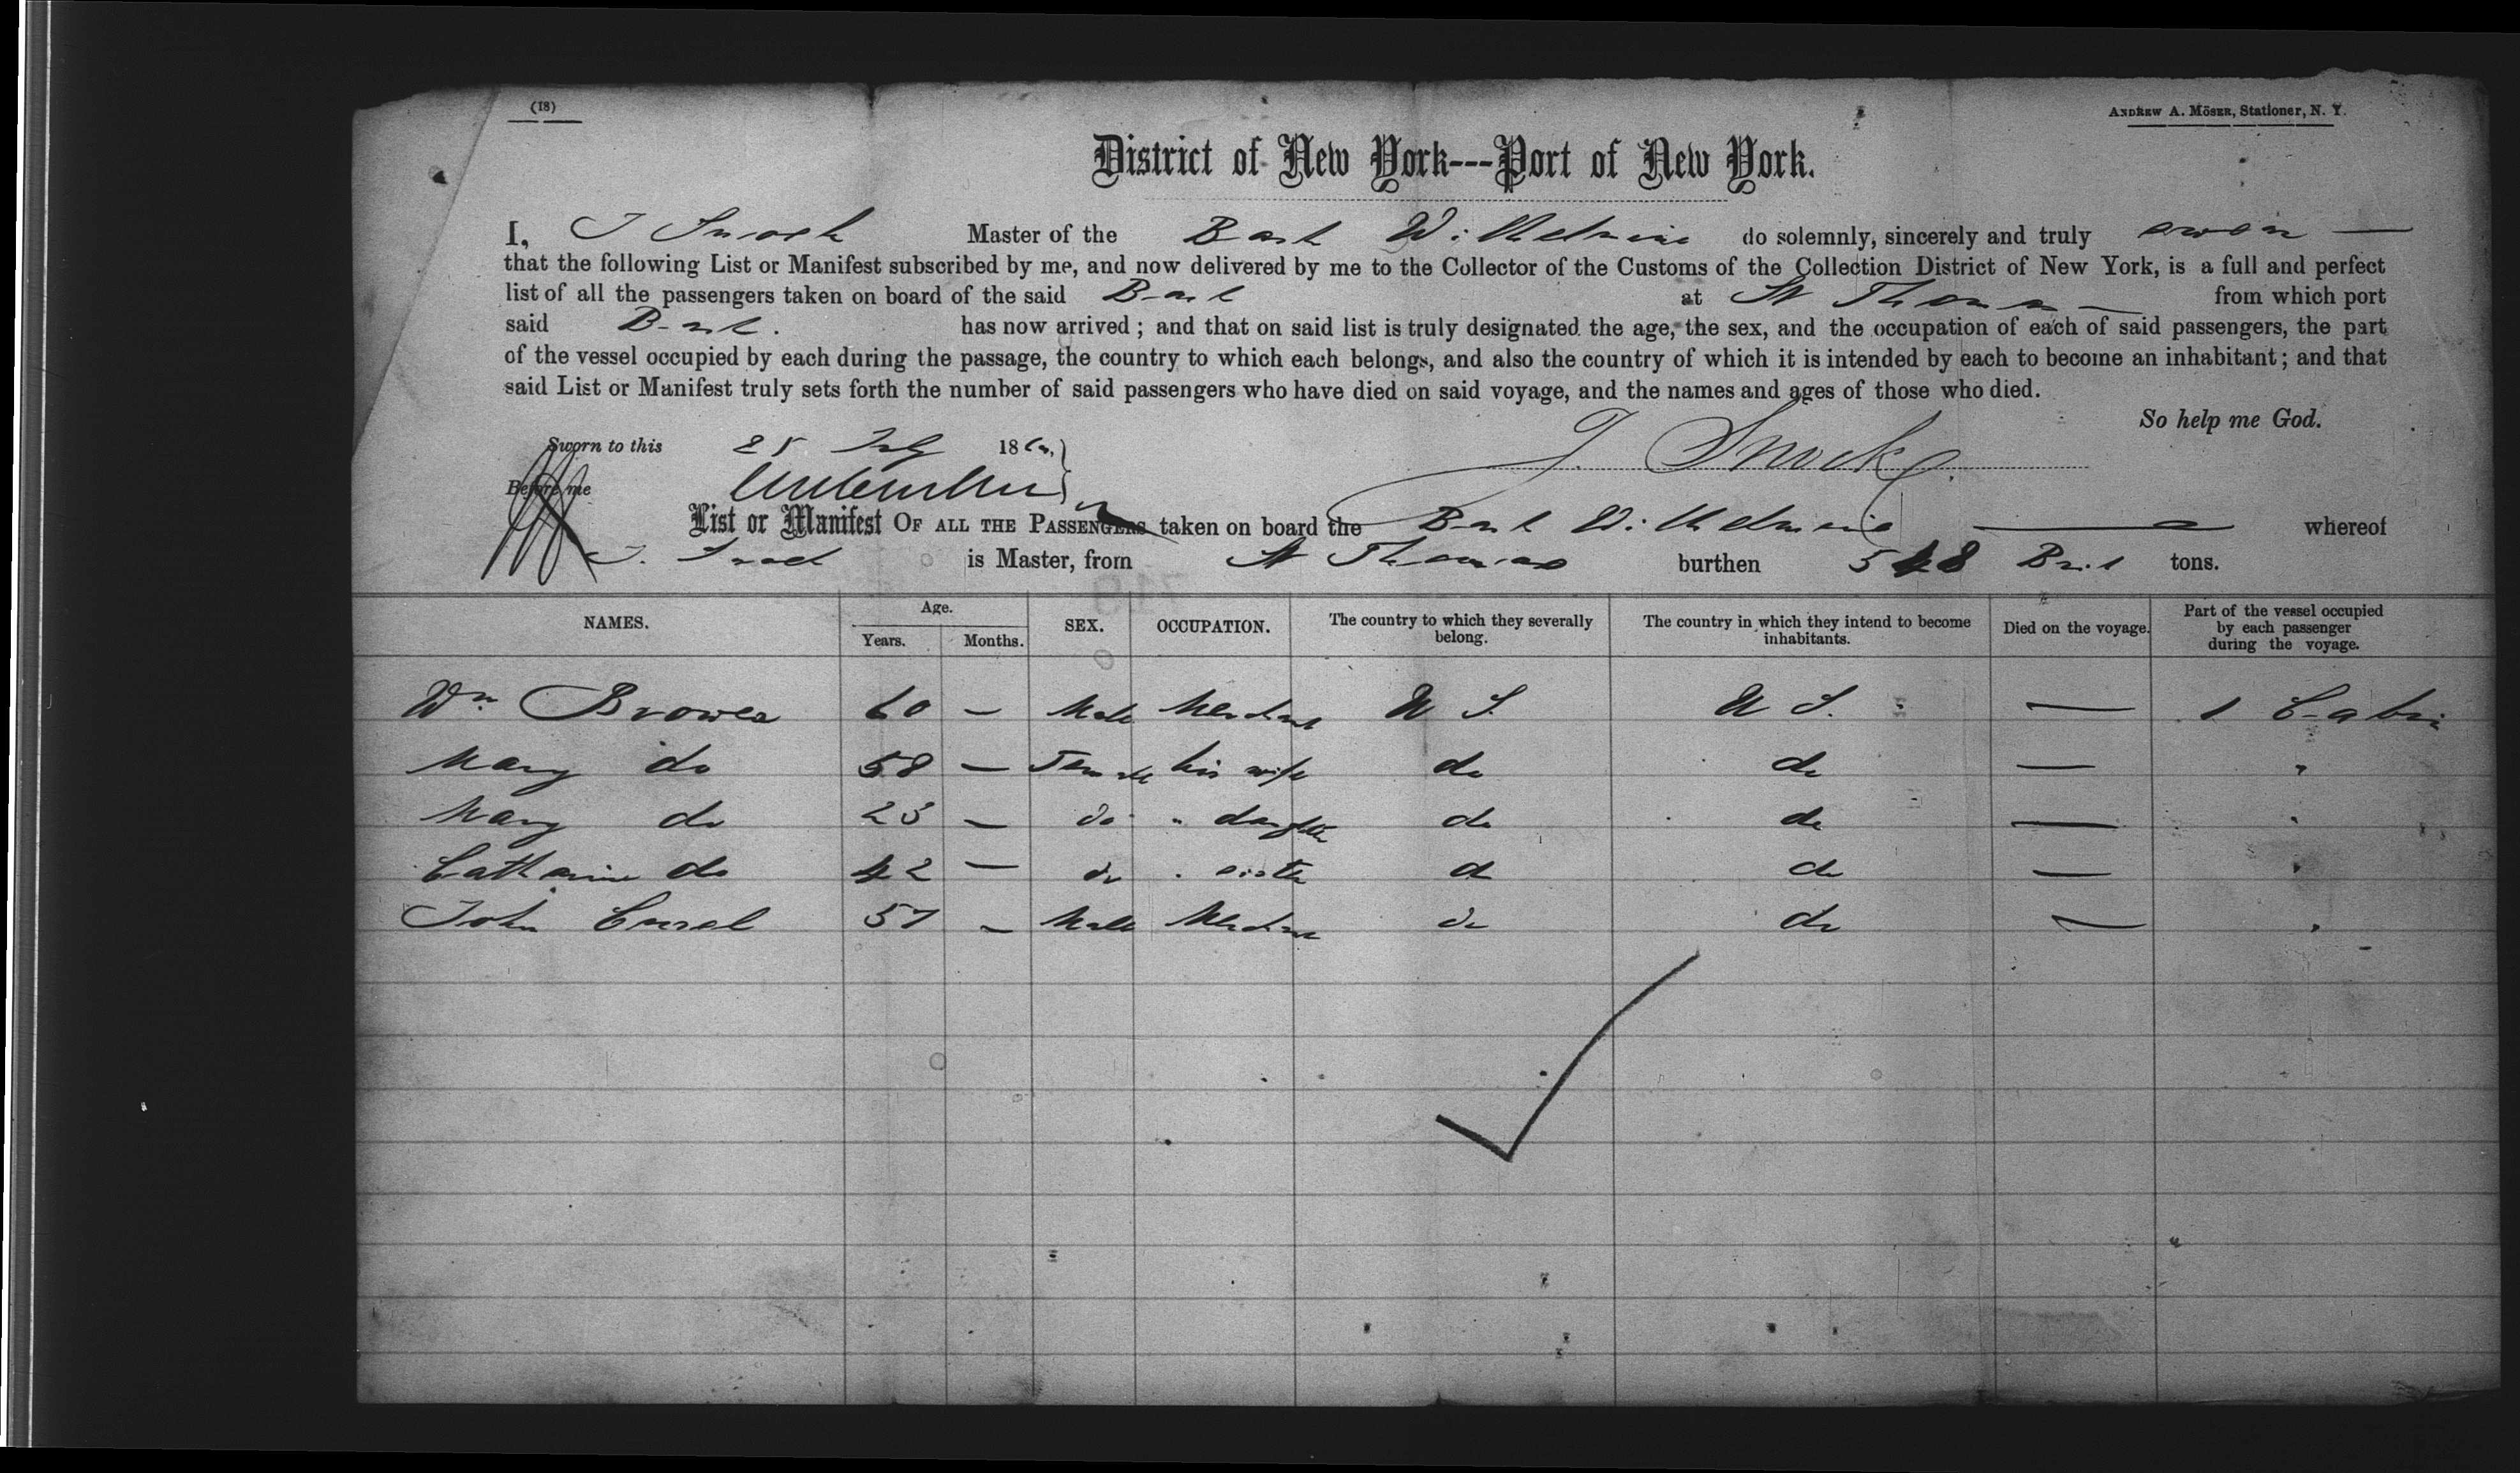 (18)
ANDREW A. MÖSER, Stationer, N. Y.
District of New York---Port of New York.
I, J Smock Master of the Bark Wilhelmine do solemnly, sincerely and truly swear —
that the following List or Manifest subscribed by me, and now delivered by me to the Collector of the Customs of the Collection District of New York, is a full and perfect
list of all the passengers taken on board of the said Bark at St Thomas — from which port
said Bark. has now arrived ; and that on said list is truly designated the age, the sex, and the occupation of each of said passengers, the part
of the vessel occupied by each during the passage, the country to which each belongs, and also the country of which it is intended by each to become an inhabitant ; and that
said List or Manifest truly sets forth the number of said passengers who have died on said voyage, and the names and ages of those who died.
So help me God.
Sworn to this 25 July 186
J. Smock
Before me
List or Manifest OF ALL THE PASSENGERS taken on board the Bark Wilhelmine — whereof
J. Smock is Master, from St Thomas burthen 548 tons.
NAMES. Age. Years. Months. SEX. OCCUPATION. The country to which they severally belong. The country in which they intend to become inhabitants. Died on the voyage. Part of the vessel occupied by each passenger during the voyage.
Wm. Brower 60 — Male Merchant U S. U S. — 1 Cabin
Mary do 58 — Female his wife do do — "
Mary do 23 — do " daughter do do — "
Catharine do 42 — do " sister do do — "
John 57 — Male Merchant do do — "